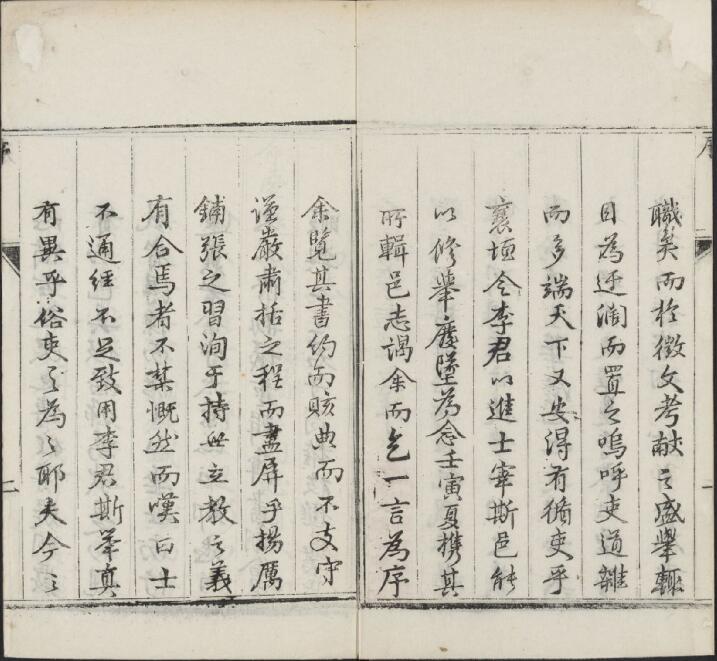 職矣而於徵文考献之盛舉輙
目為迂濶而置之嗚呼吏道雜
而多端天下又安得有循吏乎
襄垣令李君以進士宰斯邑能
以修舉廢墜為念壬寅夏携其
所輯邑志謁余而乞一言為序
余覽其書約而賅典而不支守
謹嚴肅括之程而盡屏乎揚厲
鋪張之習洵于持世立教之義
有合焉者不禁慨然而嘆曰士
不通經不足致用李君斯舉真
有異乎俗吏之為之耶夫今之
序
序
一
二